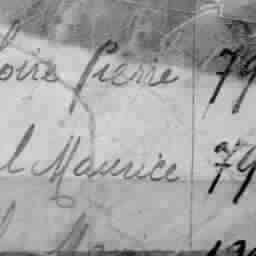 oire Pierre 79
l Maurice 79